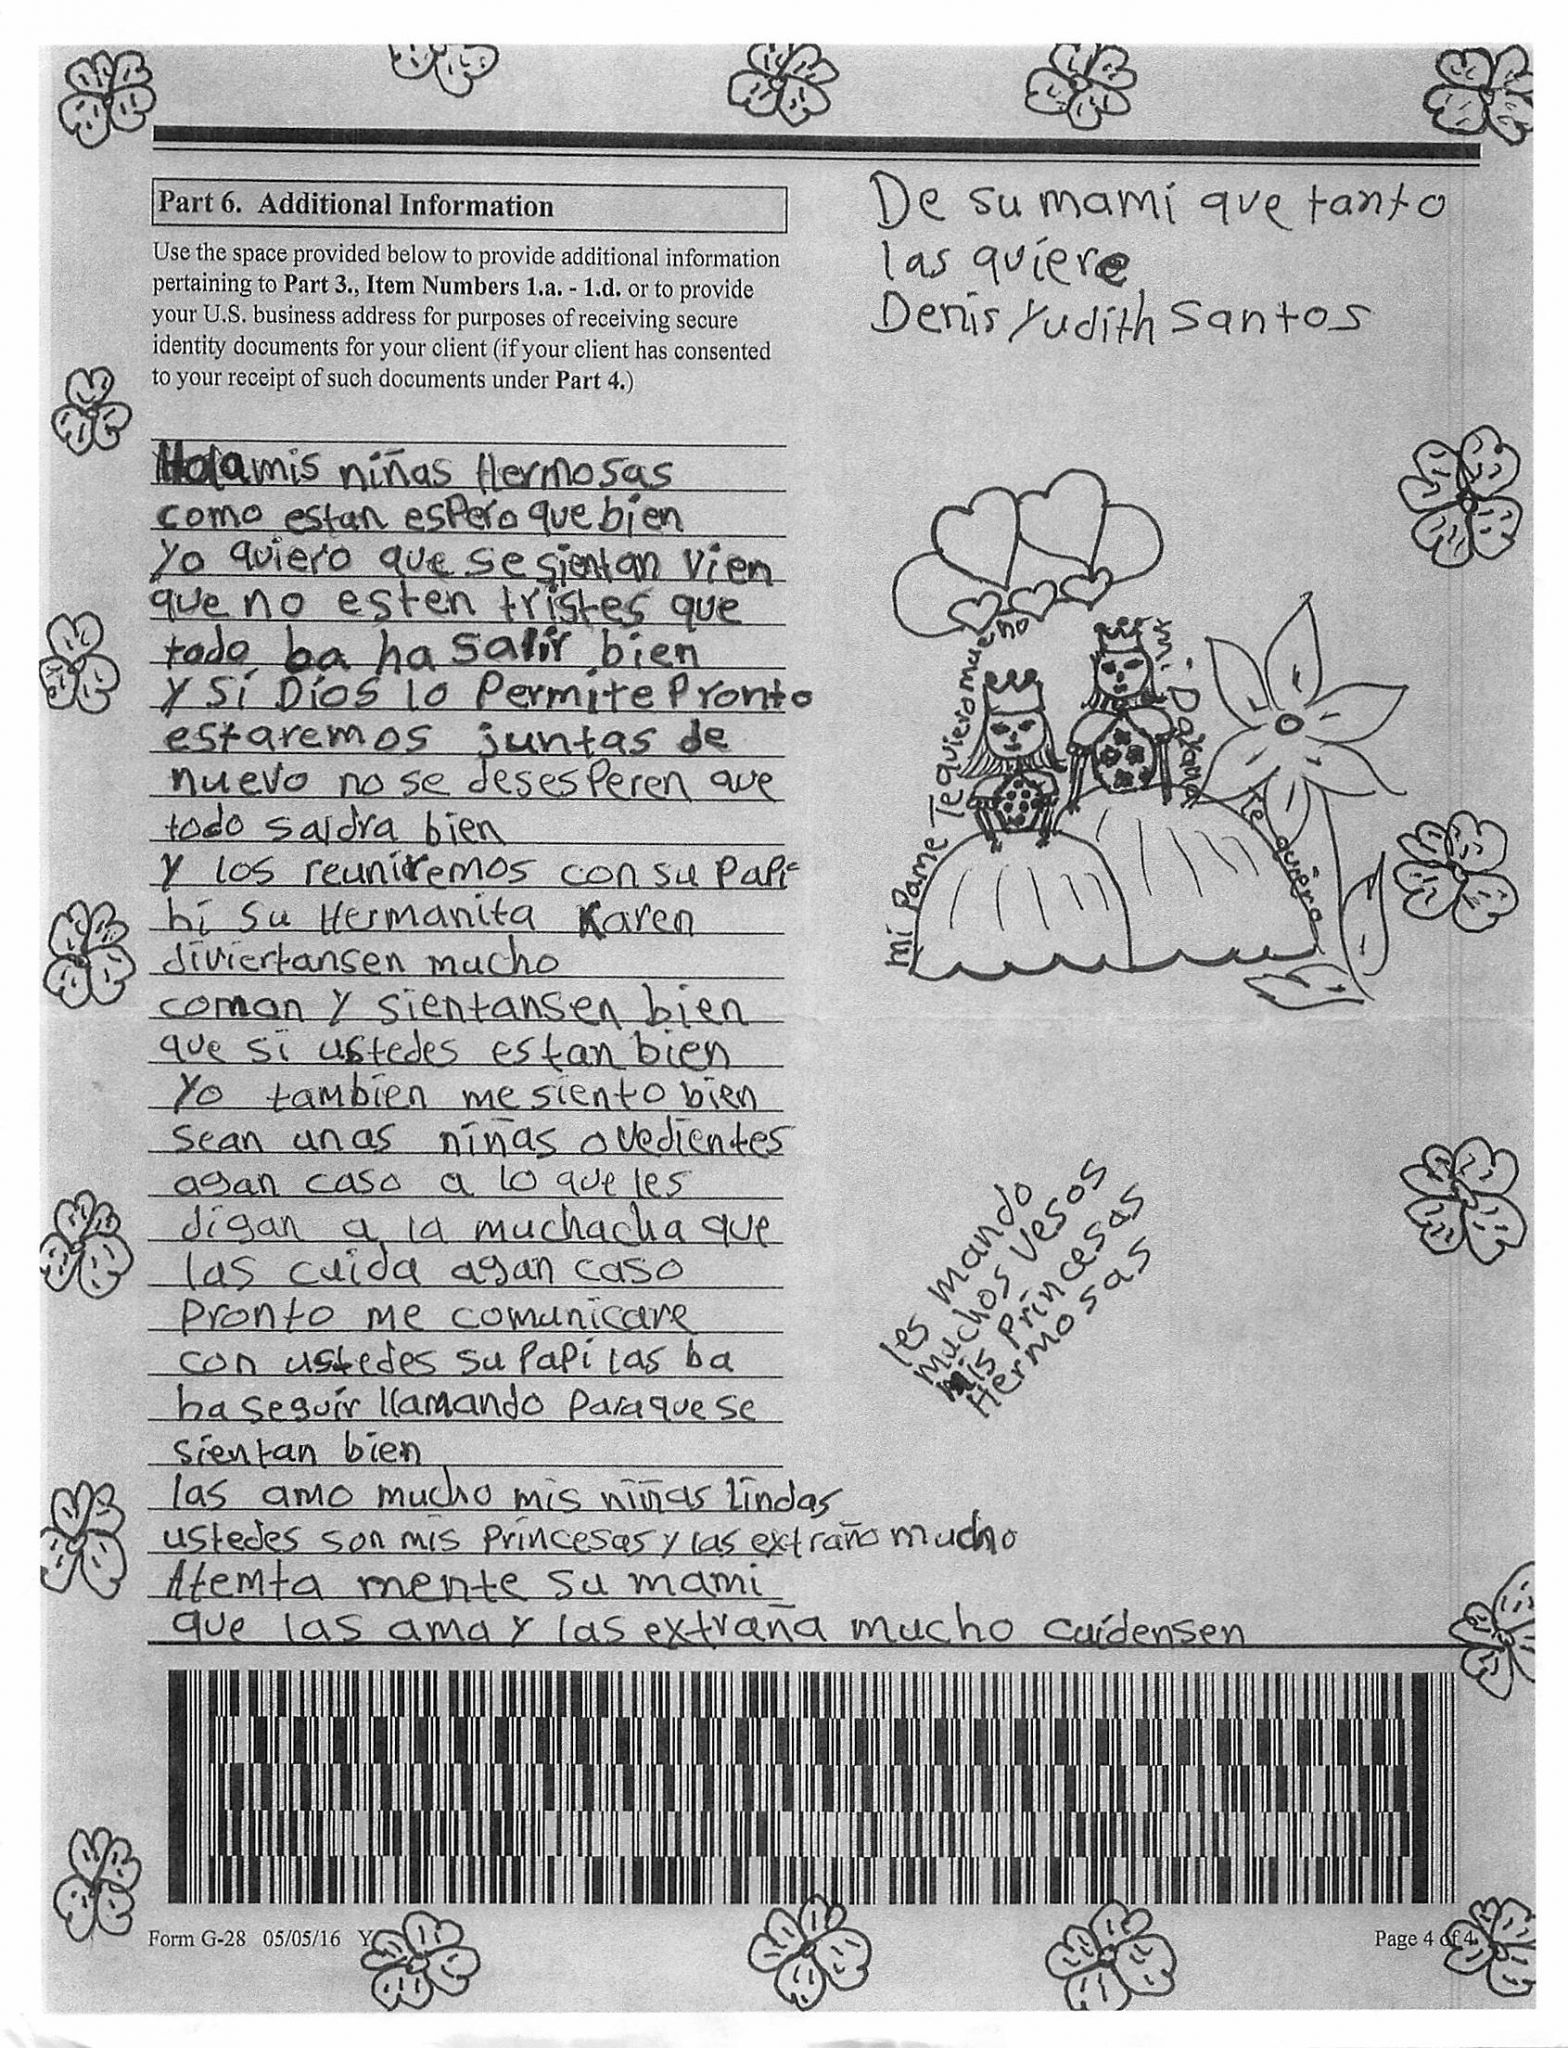 Part 6. Additional Information
Use the space provided below to provide additional information
pertaining to Part 3., Item Numbers 1.a. - 1.d. or to provide
your U.S. business address for purposes of receiving secure
identity documents for your client (if your client has consented
to your receipt of such documents under Part 4.)
Hola mis niñas Hermosas
como estan espero que bien
Yo quiero que se sientan vien
que no esten tristes que
todo ba ha salir bien
y si Dios lo Permite Pronto
estaremos juntas de
nuevo no se desesperen que
todo saldra bien
y los reuniremos con su Papi
hi su Hermanita Karen
diviertansen mucho
coman y sientansen bien
que si ustedes estan bien
Yo tambien me siento bien
sean unas niñas ovedientes
agan caso a lo que les
digan a la muchacha que
las cuida agan caso
Pronto me comunicare
con ustedes su Papi las ba
ha seguir llamando Para que se
sientan bien
las amo mucho mis niñas lindas
ustedes son mis princesas y las extraño mucho
Atemta mente su mami
que las ama y las extraña mucho cuidensen
De su mami que tanto
las quiere
Denis Yudith Santos
mi Pame Te quiero mucho
mi Dayana te quiero
les mando
muchos vesos
mis princesas
Hermosas
Form G-28 05/05/16 Y
Page 4 of 4